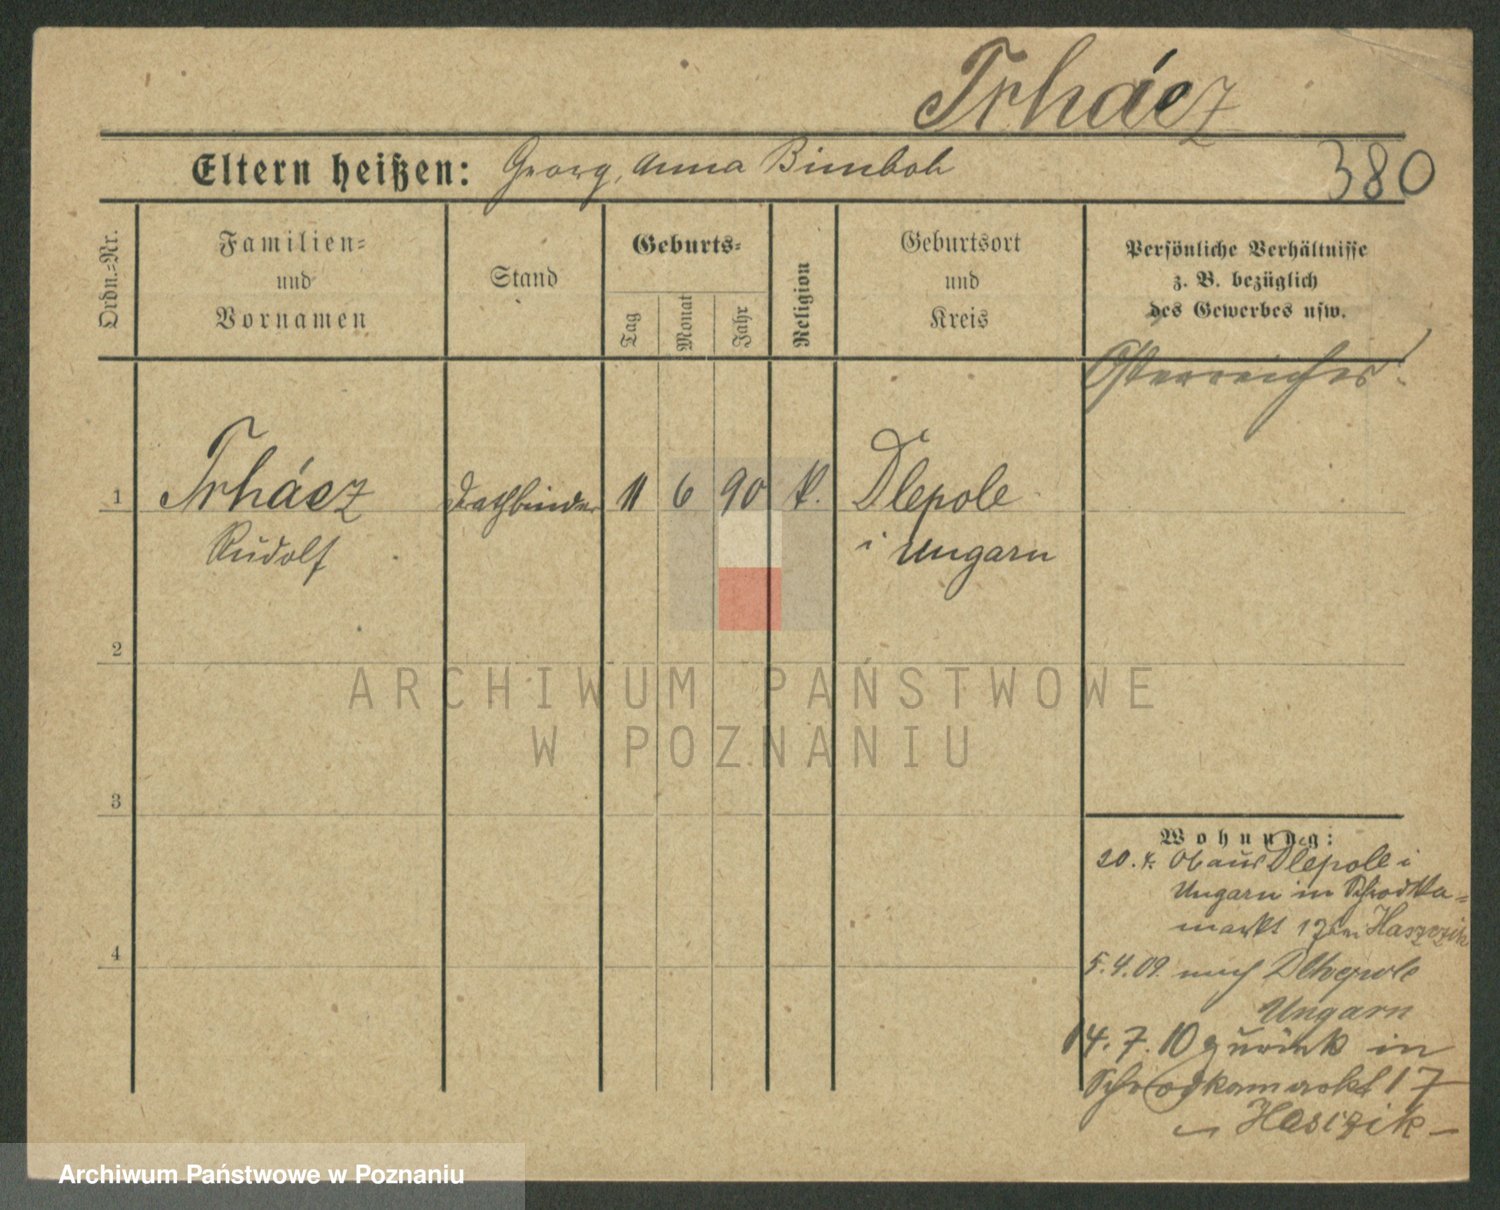 Trháez
Eltern heißen: Georg, Anna Bimboh
380
Ordn.-Nr.
Familien-
und
Vornamen
Stand
Geburts-
Tag
Monat
Jahr
Religion
Geburtsort
und
Kreis
Persönliche Verhältnisse
z. B. bezüglich
des Gewerbes usw.
Österreicher
1 Trháez 11 6 90 k. Dlepole
Rudolf i Ungarn
2
3
4
Wohnung:
20. 4. 06 aus Dlepole i
Ungarn in Schrodka-
markt 17 bei Haszczik
5.4.09 nach
Ungarn
14.7.10 zurück in
Schrodkamarkt 17
ARCHIWUM PAŃSTWOWE
W POZNANIU
Archiwum Państwowe w Poznaniu